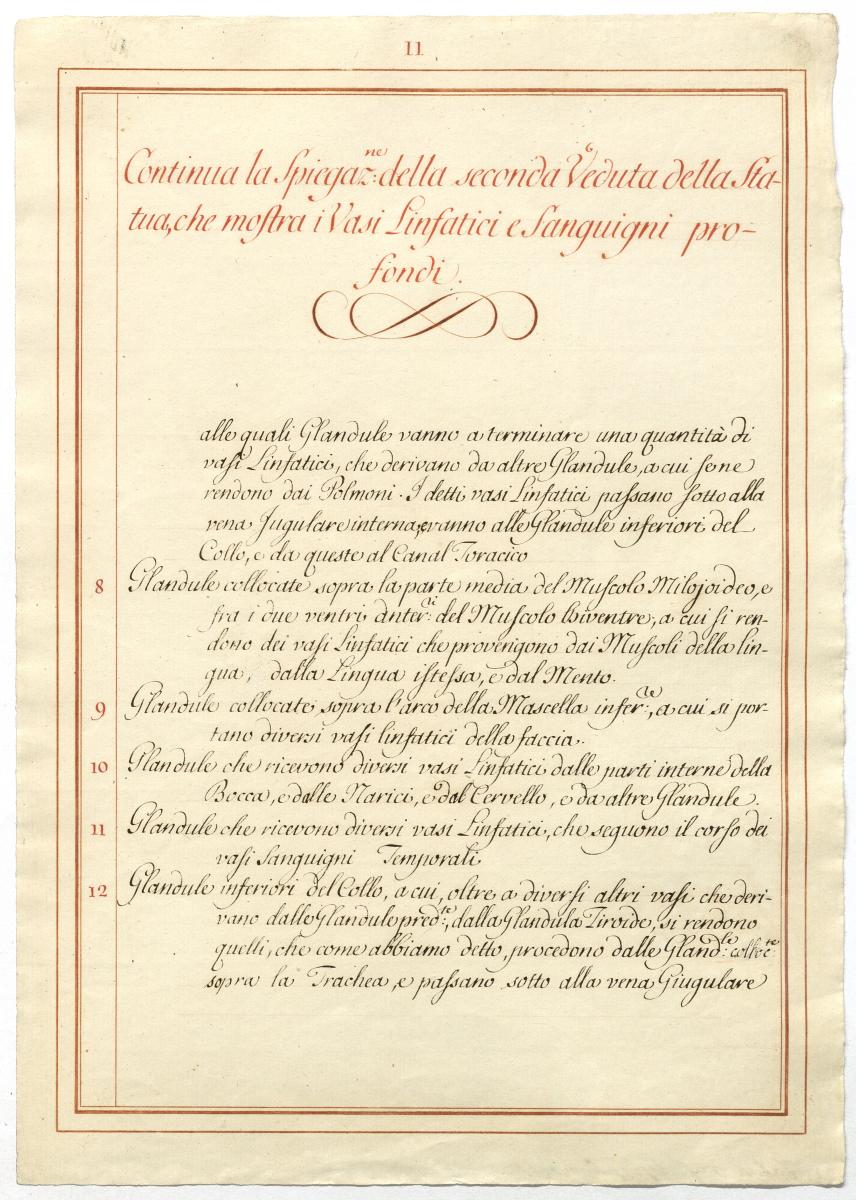 11
Continua la Spiegaz:ne della seconda Veduta della Sta-
tua, che mostra i Vasi Linfatici e Sanguigni pro-
fondi.
alle quali Glandule vanno a terminare una quantità di
vasi Linfatici, che derivano da altre Glandule, a cui se ne
rendono dai Polmoni. I detti vasi Linfatici passano sotto alla
vena Jugulare interna, e vanno alle Glandule inferiori del
Collo, e da queste al Canal Toracico
8 Glandule collocate sopra la parte media del Muscolo Milojoideo, e
fra i due ventri anter:ri del Muscolo Biventre, a cui si ren-
dono dei vasi Linfatici che provengono dai Muscoli della lin-
gua, dalla Lingua istessa, e dal Mento.
9 Glandule collocate sopra l'arco della Mascella infer:re, a cui si por-
tano diversi vasi linfatici della faccia.
10 Glandule che ricevono diversi vasi Linfatici dalle parti interne della
Bocca, e dalle Narici, e dal Cervello, e da altre Glandule.
11 Glandule che ricevono diversi vasi Linfatici, che seguono il corso dei
vasi Sanguigni Temporali
12 Glandule inferiori del Collo, a cui, oltre a diversi altri vasi che deri-
vano dalle Glandule pred:te, dalla Glandula Tiroide, si rendono
quelli, che come abbiamo detto, procedono dalle Gland:le colloc:te
sopra la Trachea, e passano sotto alla vena Giugulare